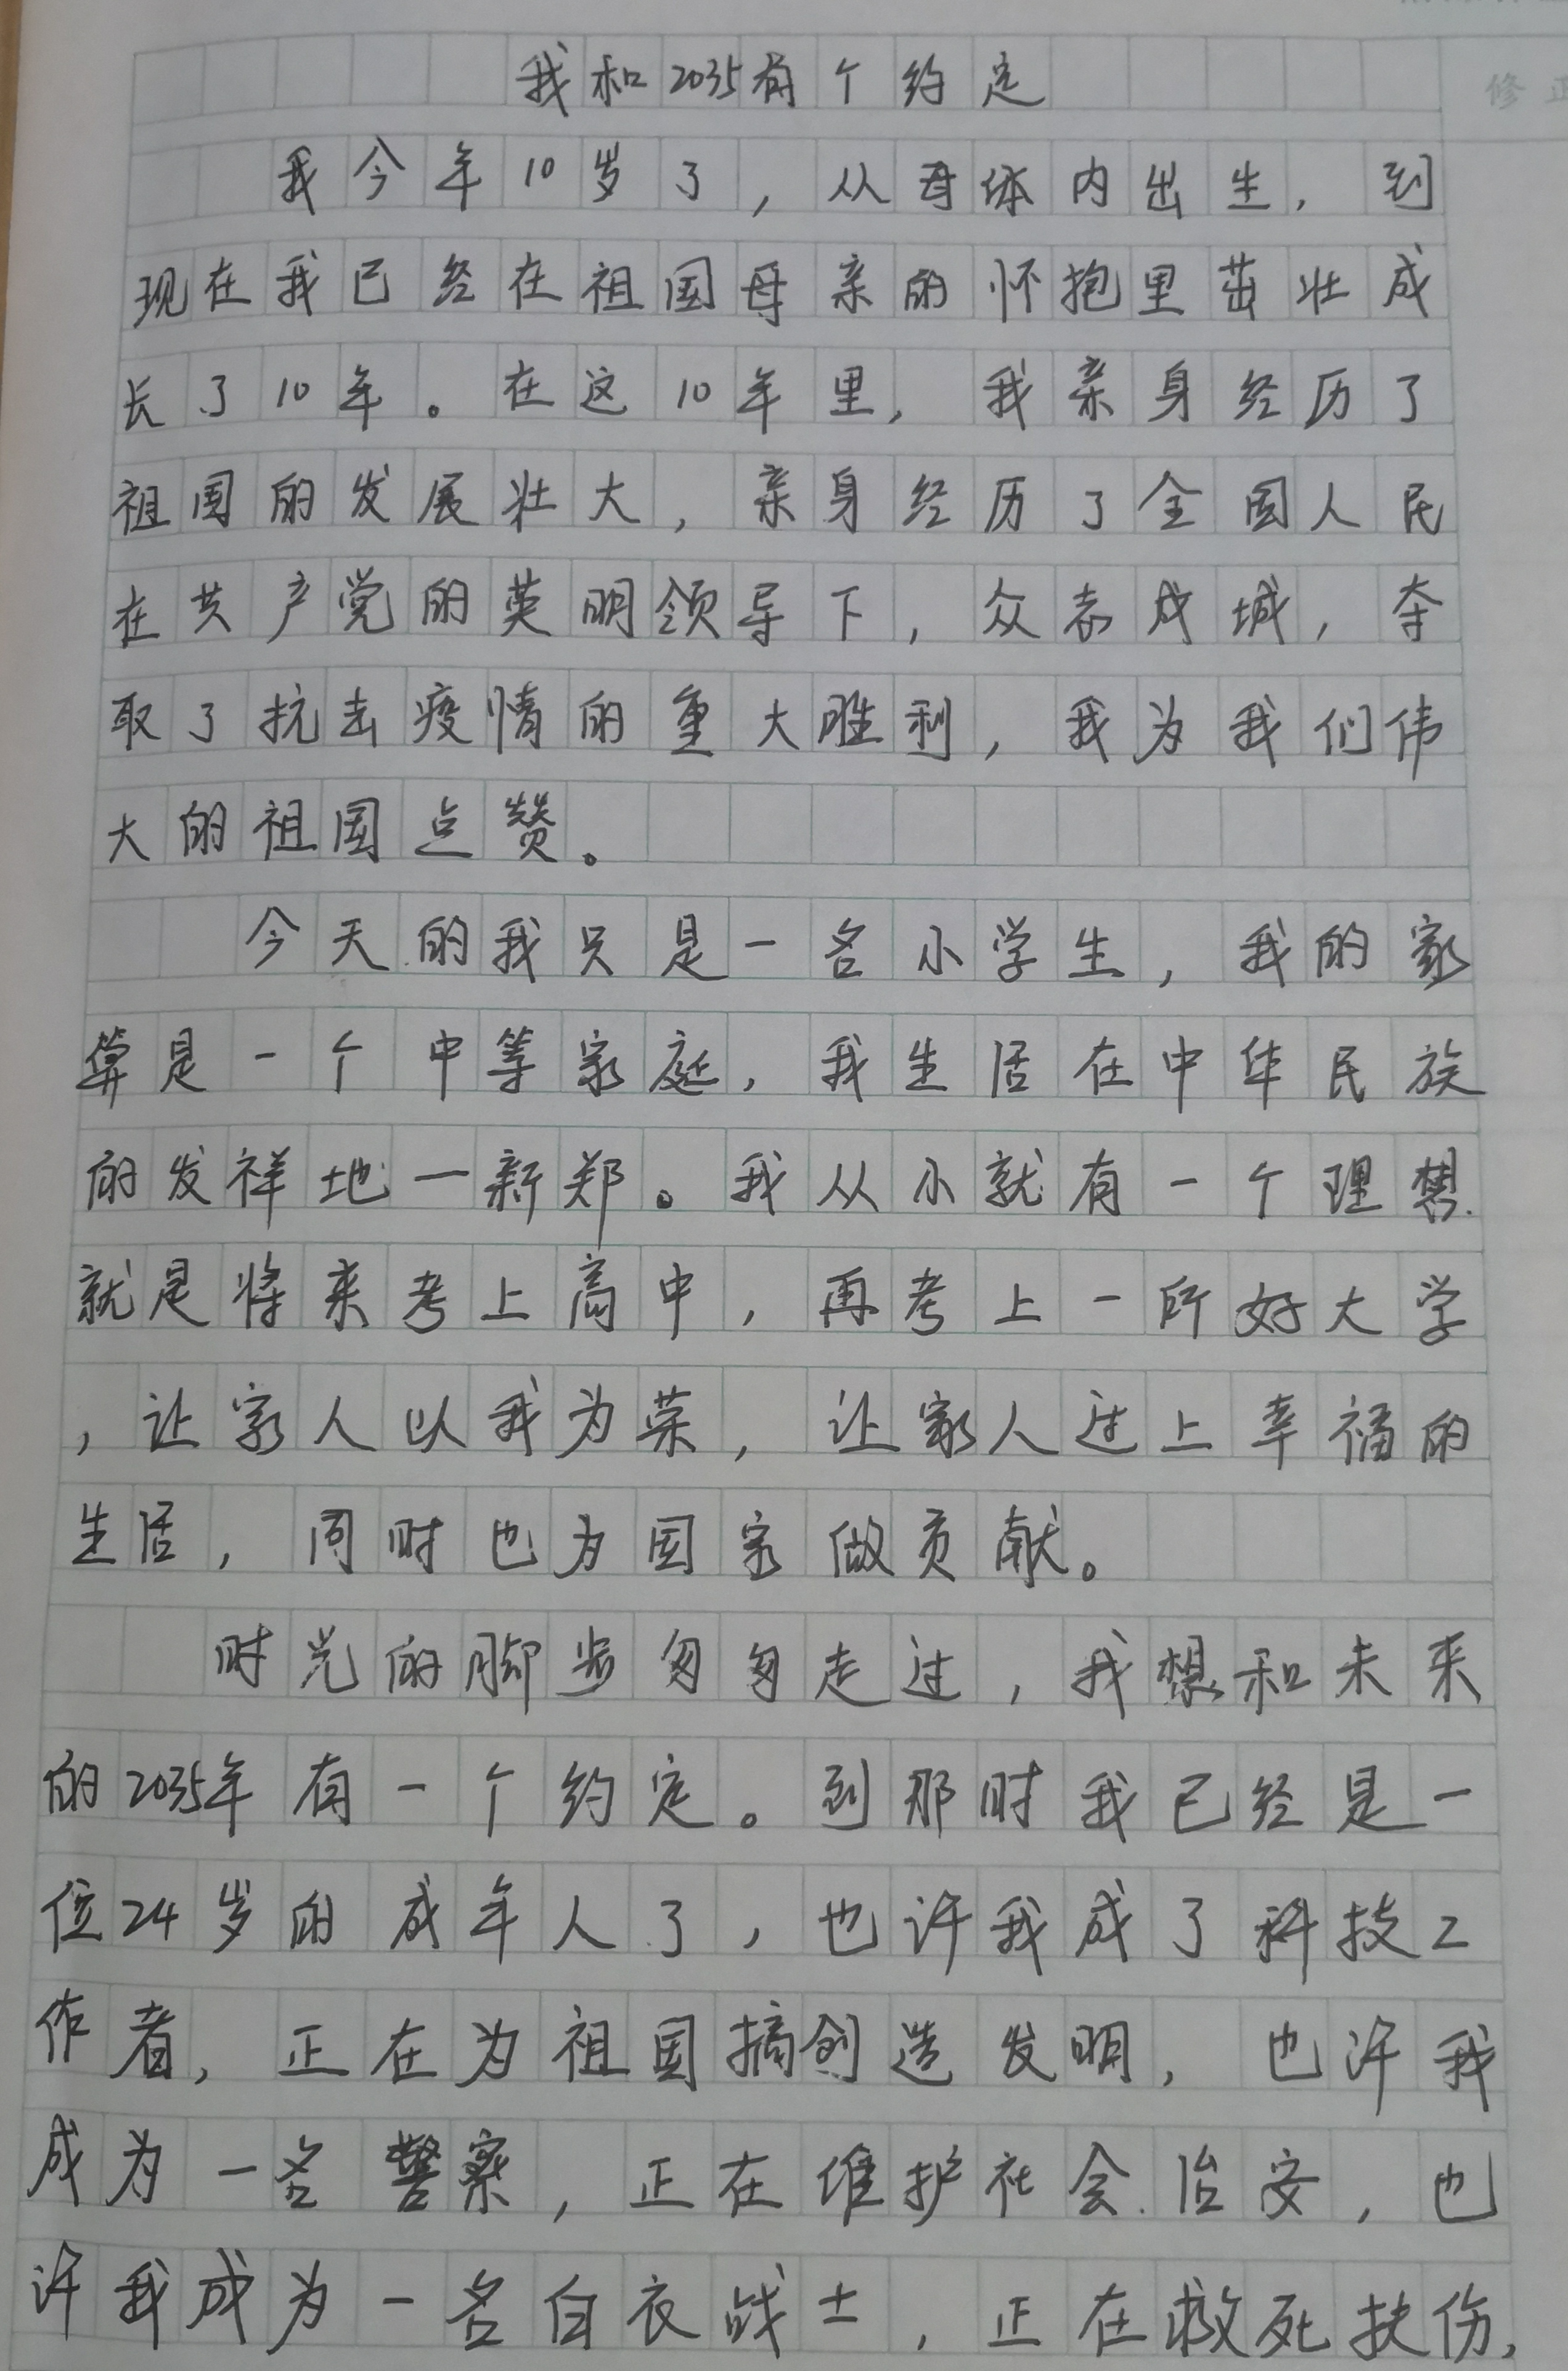 我和2035有个约定
修正
我今年10岁了，从母体内出生，到
现在我已经在祖国母亲的怀抱里茁壮成
长了10年。在这10年里，我亲身经历了
祖国的发展壮大，亲身经历了全国人民
在共产党的英明领导下，众志成城，夺
取了抗击疫情的重大胜利，我为我们伟
大的祖国点赞。
今天的我只是一名小学生，我的家
算是一个中等家庭，我生活在中华民族
的发祥地一新郑。我从小就有一个理想.
就是将来考上高中，再考上一所好大学
，让家人以我为荣，让家人过上幸福的
生活，同时也为国家做贡献。
时光的脚步匆匆走过，我想和未来
的2035年有一个约定。到那时我已经是一
位24岁的成年人了，也许我成了科技工
作者，正在为祖国搞创造发明，也许我
成为一名警察，正在维护社会治安，也
许我成为一名白衣战士，正在救死扶伤，